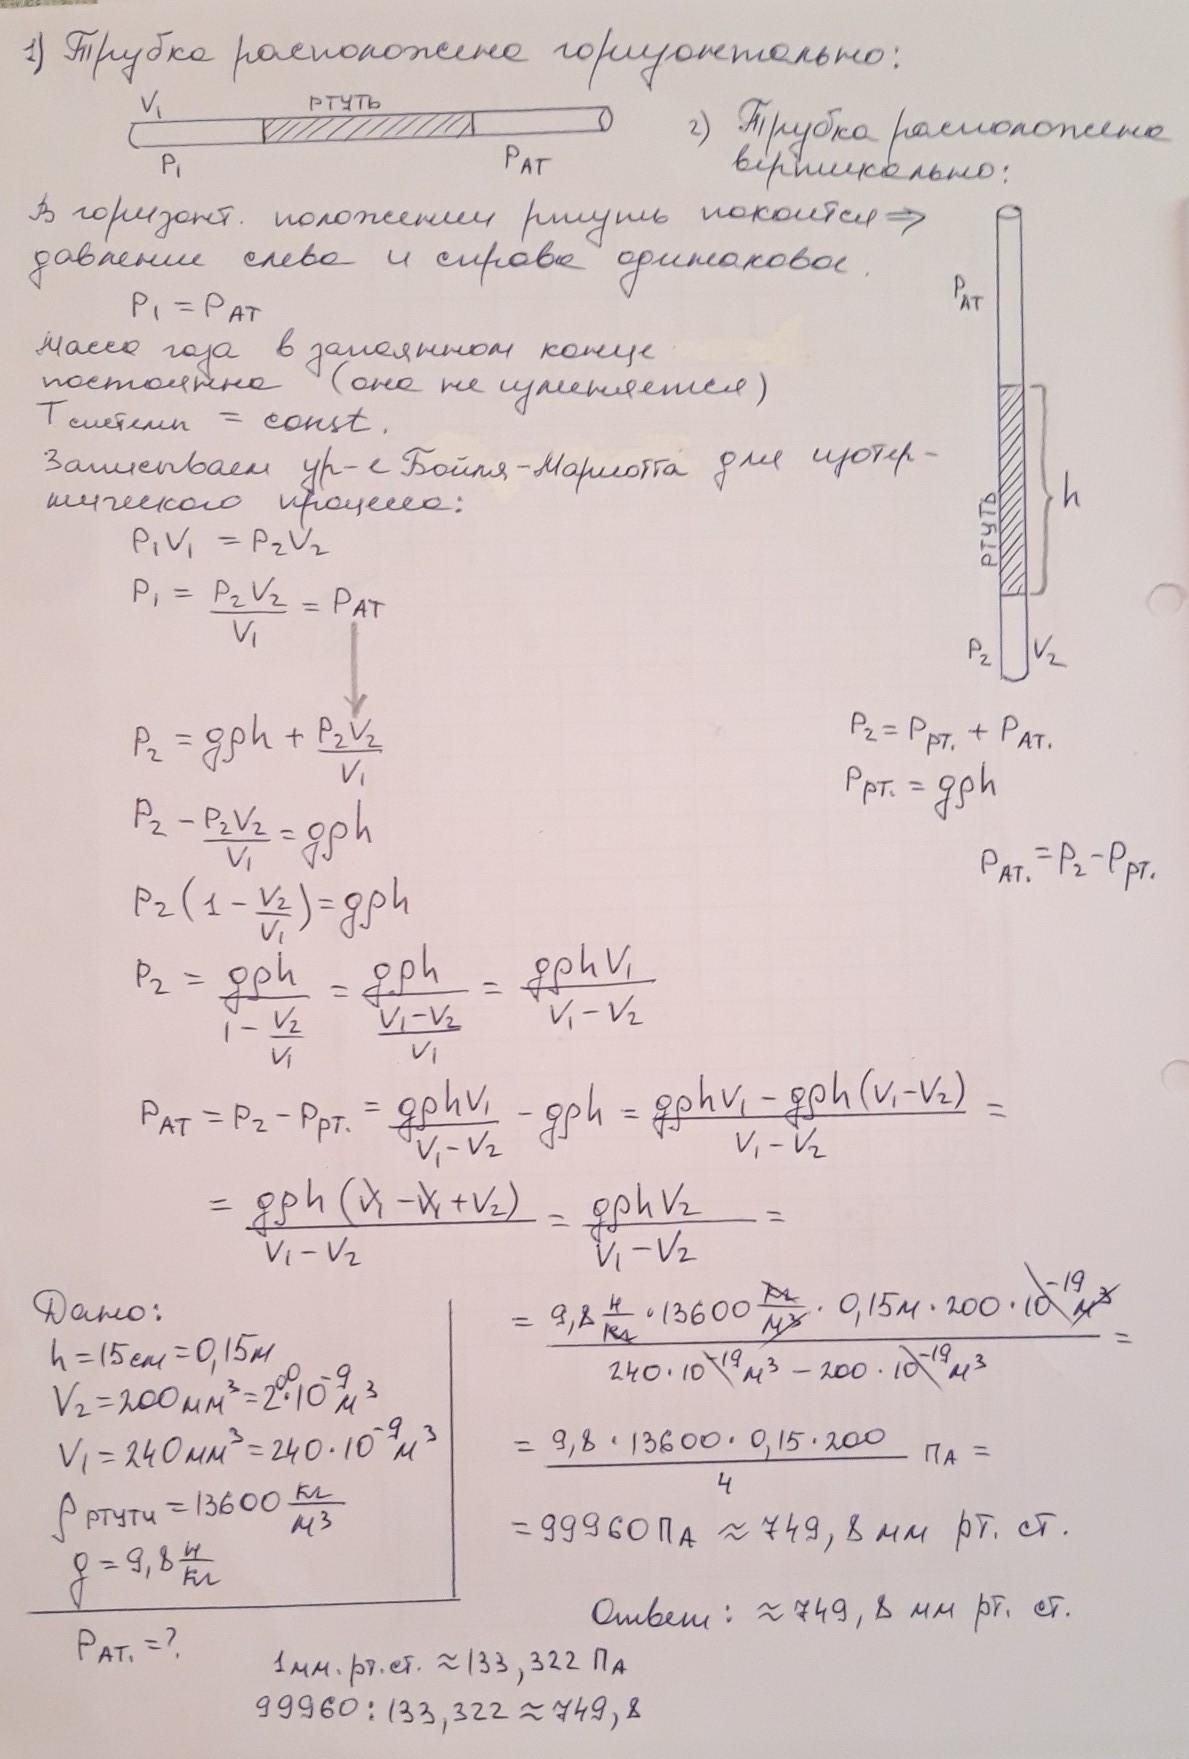 1) Трубка расположена горизонтально:
V₁ РТУТЬ
P₁ PАТ
2) Трубка расположена
вертикально:
В горизонт. положении ртуть покоится ⇒
давление слева и справа одинаковое.
P₁ = PАТ
Масса газа в запаянном конце
постоянна (она не изменяется)
T системы = const.
Записываем ур-е Бойля-Мариотта для изотер-
мического процесса:
P₁V₁ = P₂V₂
P₁ = P₂V₂/V₁ = PАТ
PАТ
РТУТЬ
h
P₂ V₂
P₂ = gρh + P₂V₂/V₁
P₂ - P₂V₂/V₁ = gρh
P₂(1 - V₂/V₁) = gρh
P₂ = gρh/(1 - V₂/V₁) = gρh/((V₁-V₂)/V₁) = gρhV₁/(V₁-V₂)
P₂ = Pрт. + PАТ.
Pрт. = gρh
PАТ. = P₂ - Pрт.
PАТ = P₂ - Pрт. = gρhV₁/(V₁-V₂) - gρh = (gρhV₁ - gρh(V₁-V₂))/(V₁-V₂) =
= gρh(V₁ - V₁ + V₂)/(V₁-V₂) = gρhV₂/(V₁-V₂) =
Дано:
h = 15 см = 0,15 м
V₂ = 200 мм³ = 200·10⁻⁹ м³
V₁ = 240 мм³ = 240·10⁻⁹ м³
ρ ртути = 13600 кг/м³
g = 9,8 н/кг
PАТ. = ?
= (9,8 н/кг · 13600 кг/м³ · 0,15 м · 200·10⁻¹⁹ м³)/(240·10⁻¹⁹ м³ - 200·10⁻¹⁹ м³) =
= (9,8 · 13600 · 0,15 · 200)/4 ПА =
= 99960 ПА ≈ 749,8 мм рт. ст.
Ответ: ≈ 749,8 мм рт. ст.
1 мм. рт. ст. ≈ 133,322 ПА
99960 : 133,322 ≈ 749,8